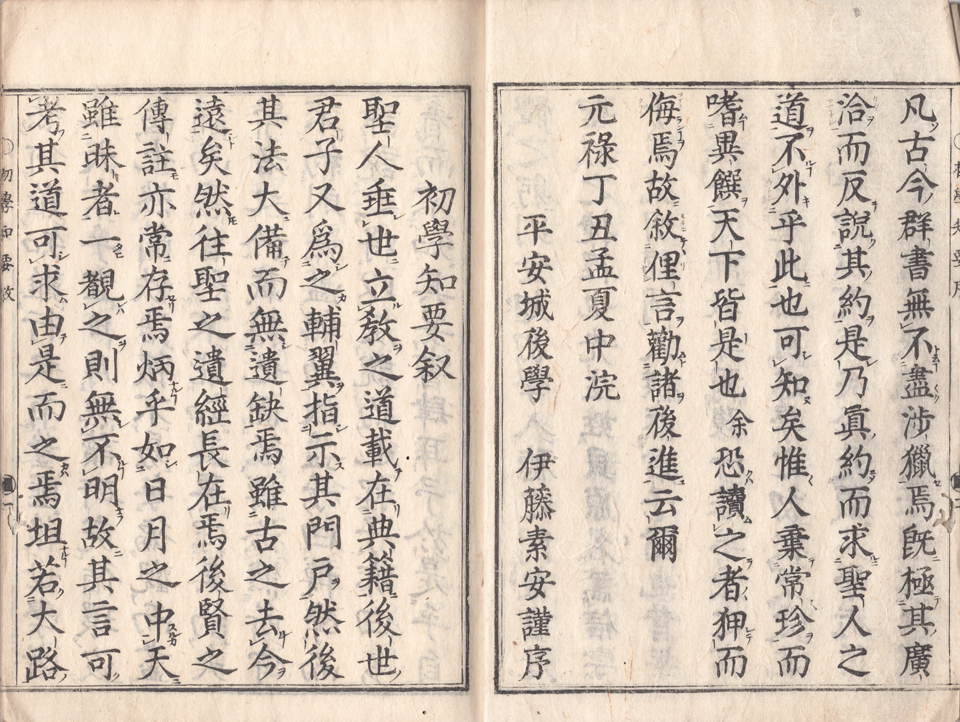 凡古今群書無不盡涉獵焉旣極其廣
洽而反說其約是乃眞約而求聖人之
道不外乎此也可知矣惟人棄常珍而
嗜異饌天下皆是也余恐讀之者狎而
侮焉故敘俚言勸諸後進云爾
元祿丁丑孟夏中浣
平安城後學　伊藤素安謹序
初學知要叙
聖人垂世立教之道載在典籍後世
君子又爲之輔翼指示其門戸然後
其法大備而無遺缺焉雖古之去今
遠矣然往聖之遺經長在焉後賢之
傳註亦常存焉炳乎如日月之中天
雖昧者一覩之則無不明故其言可
考其道可求由是而之焉坦若大路